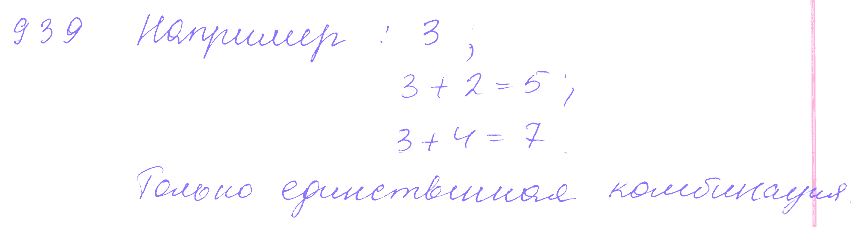 939 Например: 3,
3 + 2 = 5;
3 + 4 = 7.
Только единственная комбинация.